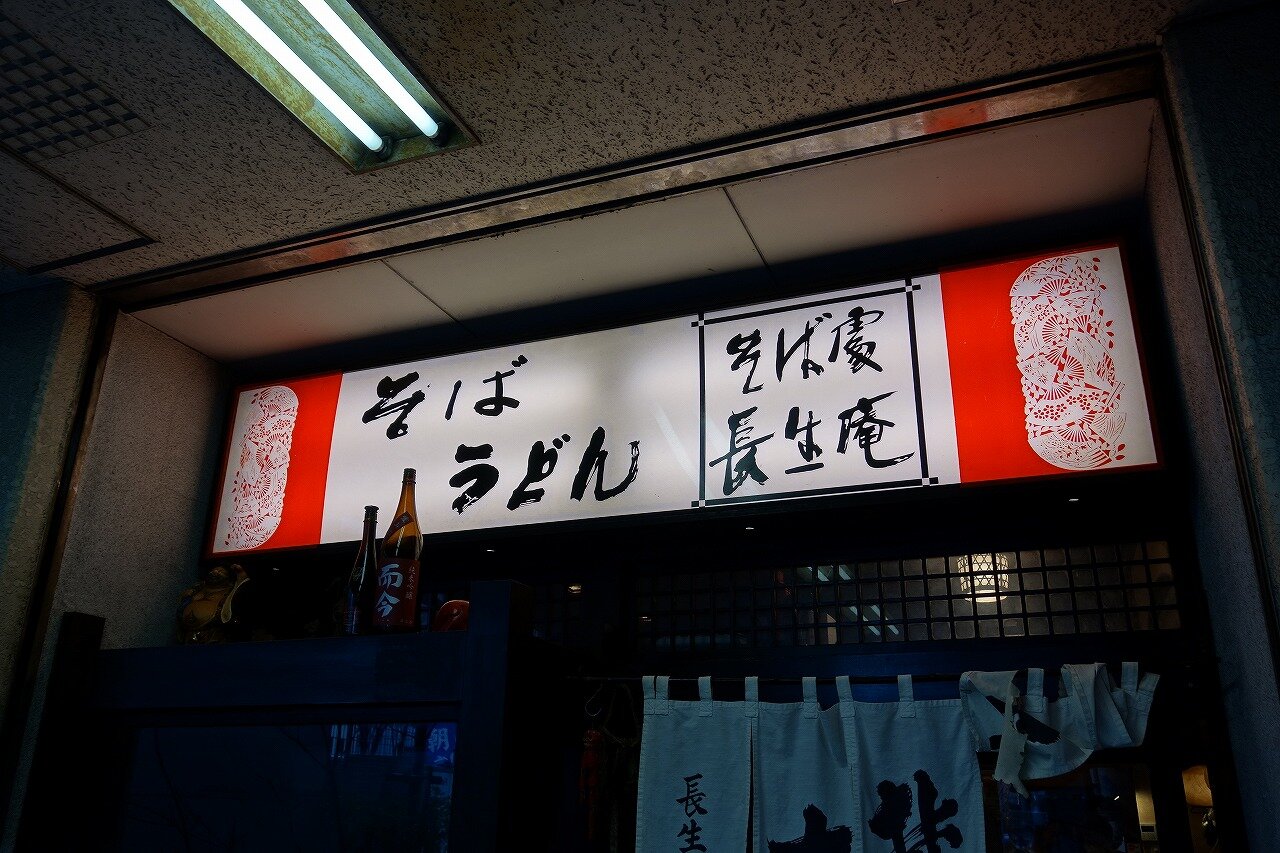 そば
うどん
そば處
長生庵
而今
長生